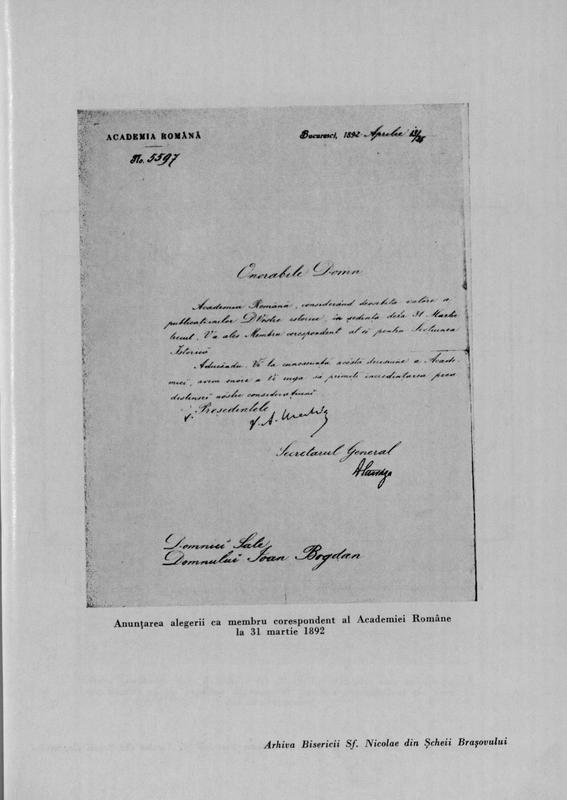 ACADEMIA ROMÂNĂ
No. 5597
Bucuresci, 1892 Aprilie
Onorabile Domn
Academia Română, considerând deosebita valóre a
publicatiunilor DVóstre istorice, in ședinta dela 31 Martie
trecut, V'a ales Membru corespondent al ei pentru Sectiunea
Istorică
Aducêndu Vĕ la cunoscintă acéstă decisiune a Acade-
miei, avem onóre a Vĕ ruga să primiti incredintarea prea
destinsei nóstre consideratiuni
p. Presedintele
Secretarul General
Domniei Sale
Domnului Ióan Bogdan
Anunțarea alegerii ca membru corespondent al Academiei Române
la 31 martie 1892
Arhiva Bisericii Sf. Nicolae din Șcheii Brașovului